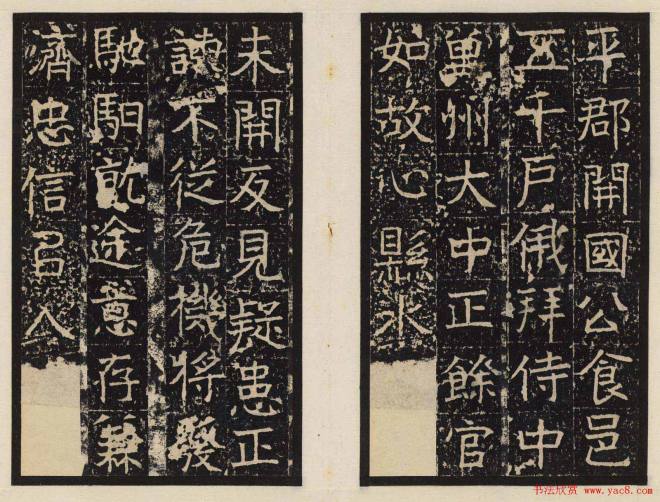 平郡開國公食邑
五千戶俄拜侍中
州大中正餘官
如故心縣水
未開反見疑忠正
諫不從危機將發
馳馹就途意存兼
濟忠信召入
书法欣赏 www.yac8.com